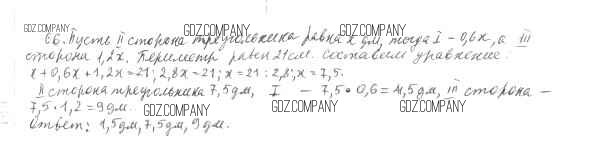 GDZ.COMPANY GDZ.COMPANY GDZ.COMPANY
66. Пусть II сторона треугольника равна x дм, тогда I – 0,6x, а III
сторона 1,2x. Периметр равен 21 см. Составим уравнение:
x + 0,6x + 1,2x = 21; 2,8x = 21; x = 21 : 2,8; x = 7,5.
II сторона треугольника 7,5 дм, I – 7,5 • 0,6 = 4,5 дм, III сторона –
7,5 • 1,2 = 9 дм. GDZ.COMPANY GDZ.COMPANY GDZ.COMPANY
Ответ: 1,5 дм, 7,5 дм, 9 дм.